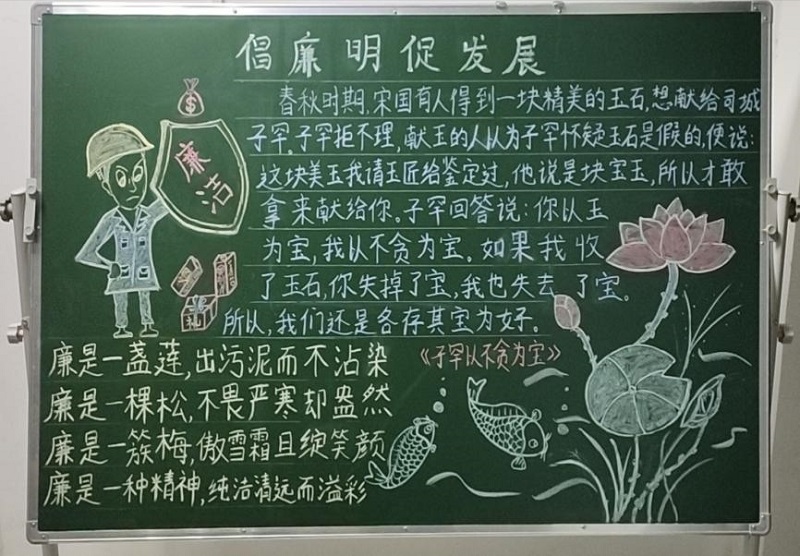 倡廉明促发展
春秋时期,宋国有人得到一块精美的玉石,想献给司城
子罕。子罕拒不理,献玉的人以为子罕怀疑玉石是假的,便说:
这块美玉我请玉匠给鉴定过,他说是块宝玉,所以才敢
拿来献给你。子罕回答说:你以玉
为宝,我以不贪为宝。如果我收
了玉石,你失掉了宝,我也失去了宝。
所以,我们还是各存其宝为好。
《子罕以不贪为宝》
$
廉洁
廉是一盏莲,出污泥而不沾染
廉是一棵松,不畏严寒却盎然
廉是一簇梅,傲雪霜且绽笑颜
廉是一种精神,纯洁清远而溢彩